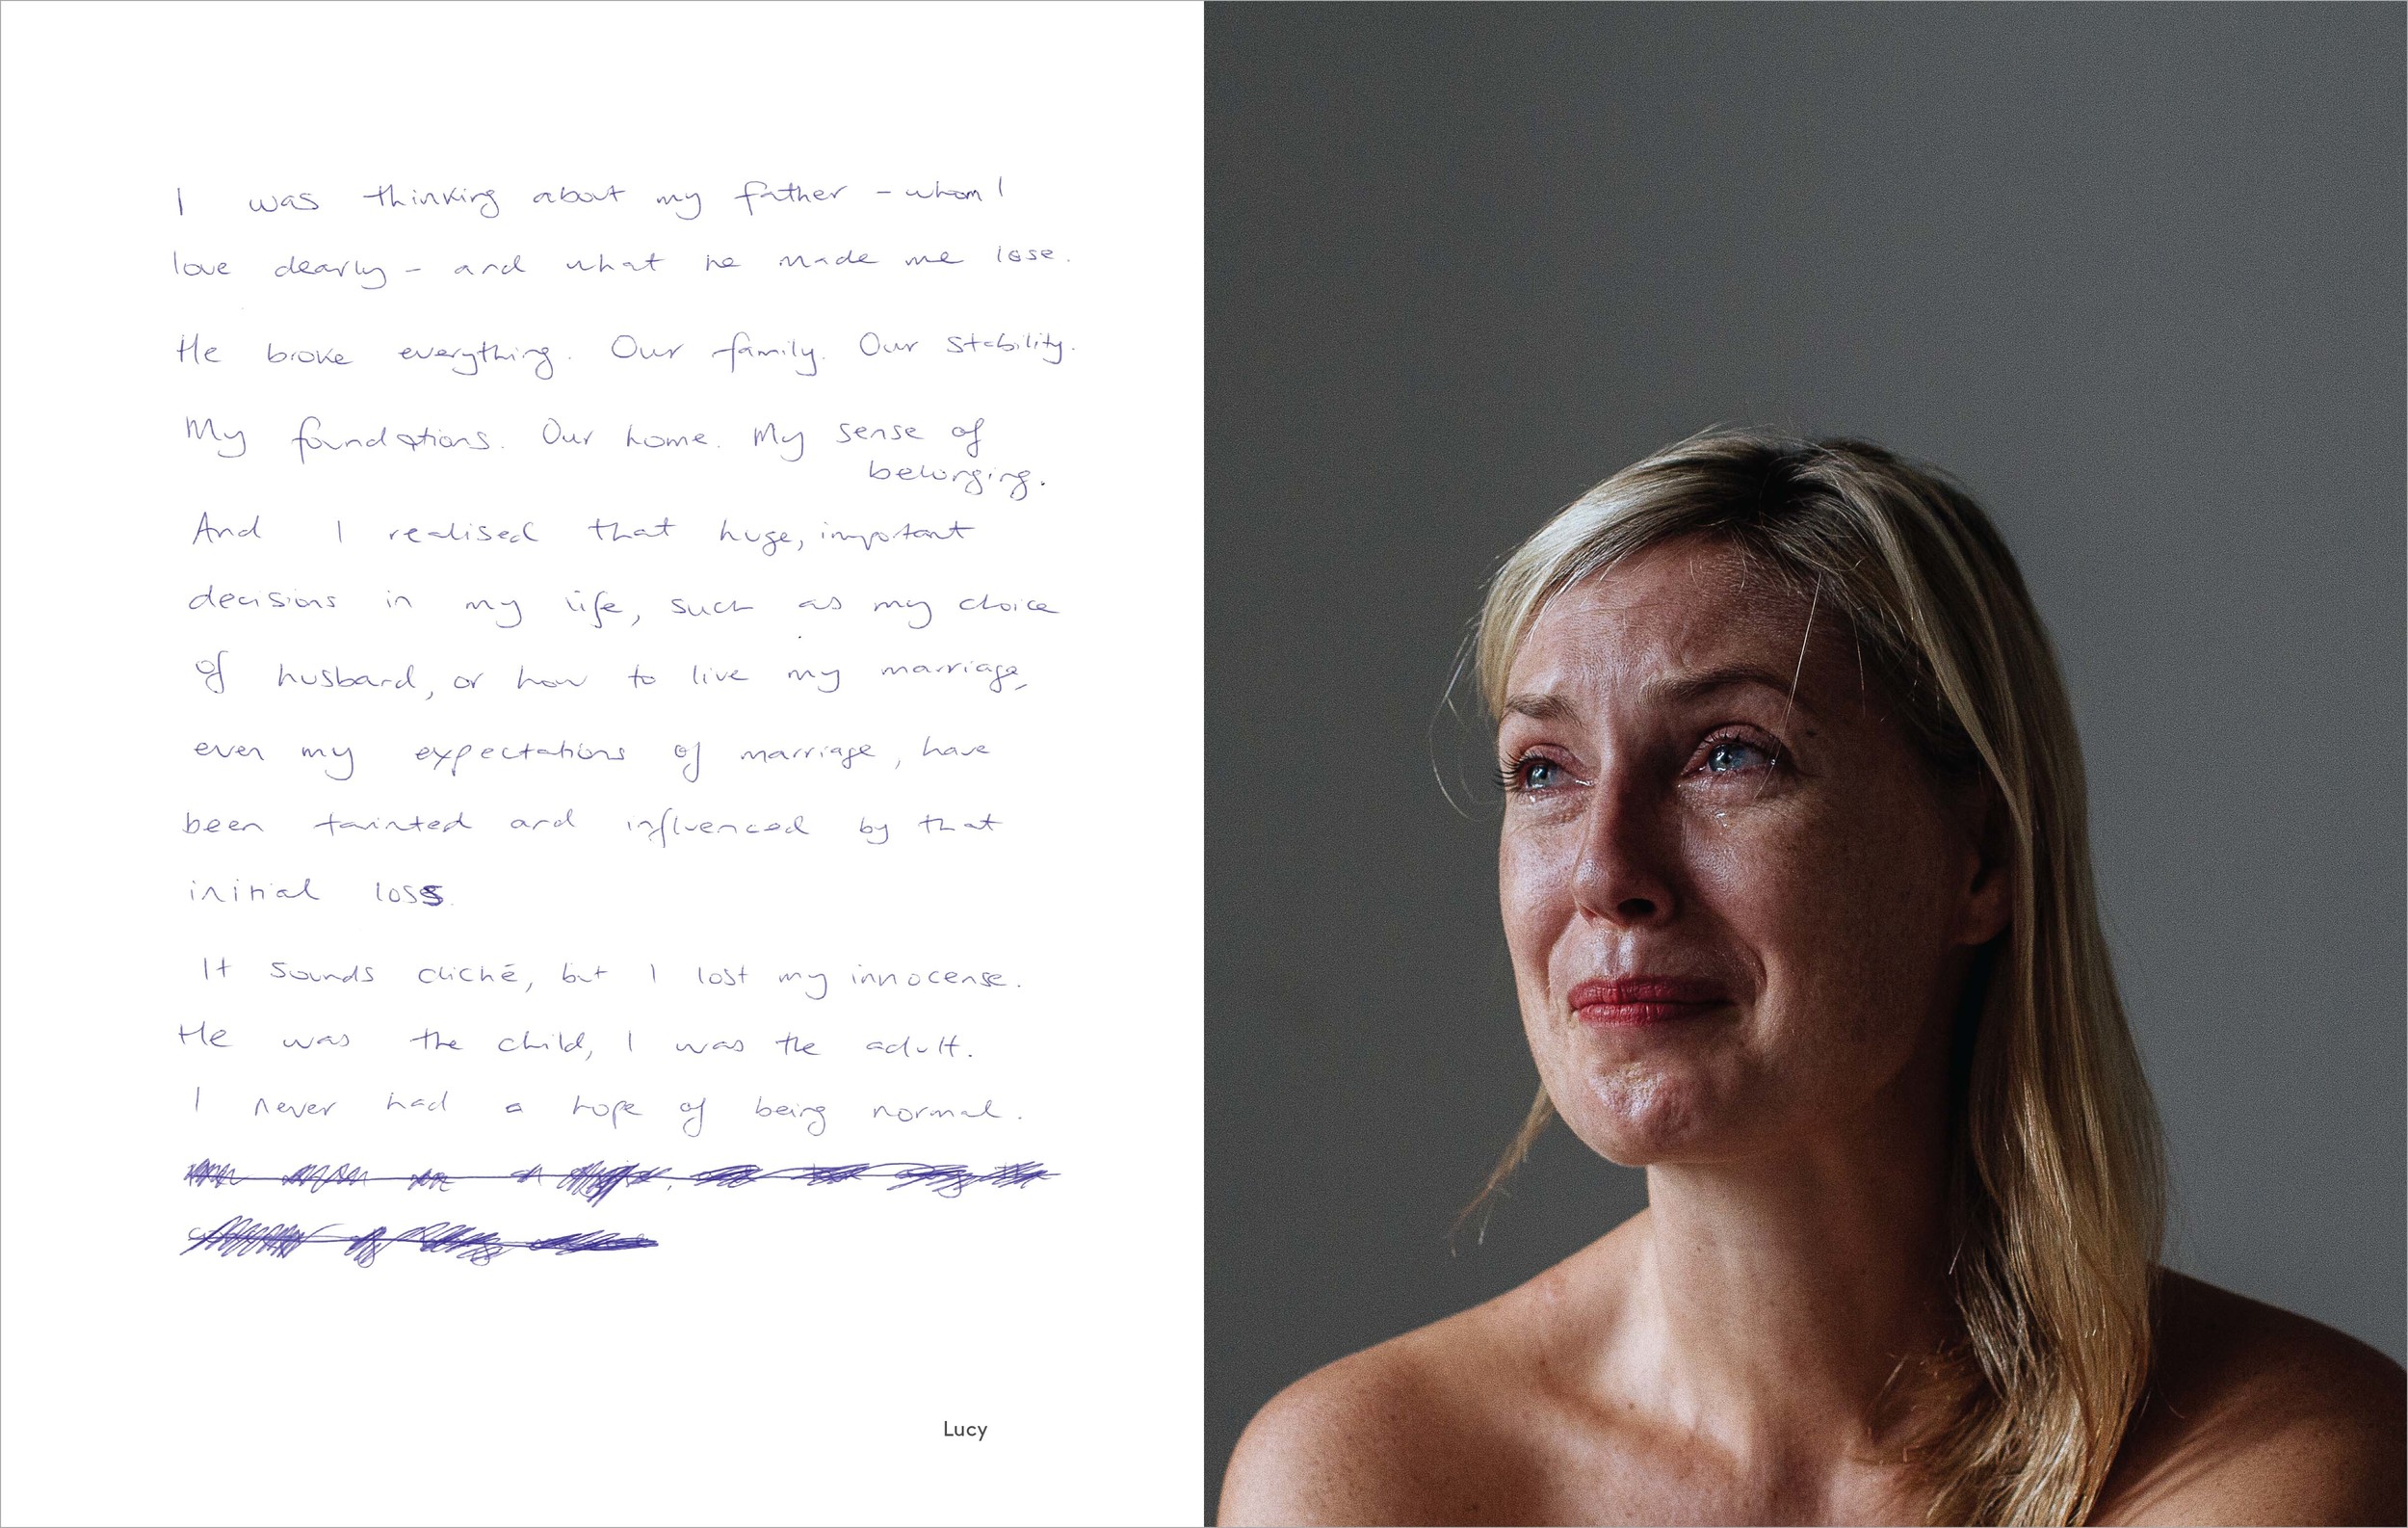 I was thinking about my father – whom I
love dearly – and what he made me lose.
He broke everything. Our family. Our stability.
My foundations. Our home. My sense of
belonging.
And I realised that huge, important
decisions in my life, such as my choice
of husband, or how to live my marriage,
even my expectations of marriage, have
been tainted and influenced by that
initial loss.
It sounds cliché, but I lost my innocense.
He was the child, I was the adult.
I never had a hope of being normal.
Lucy